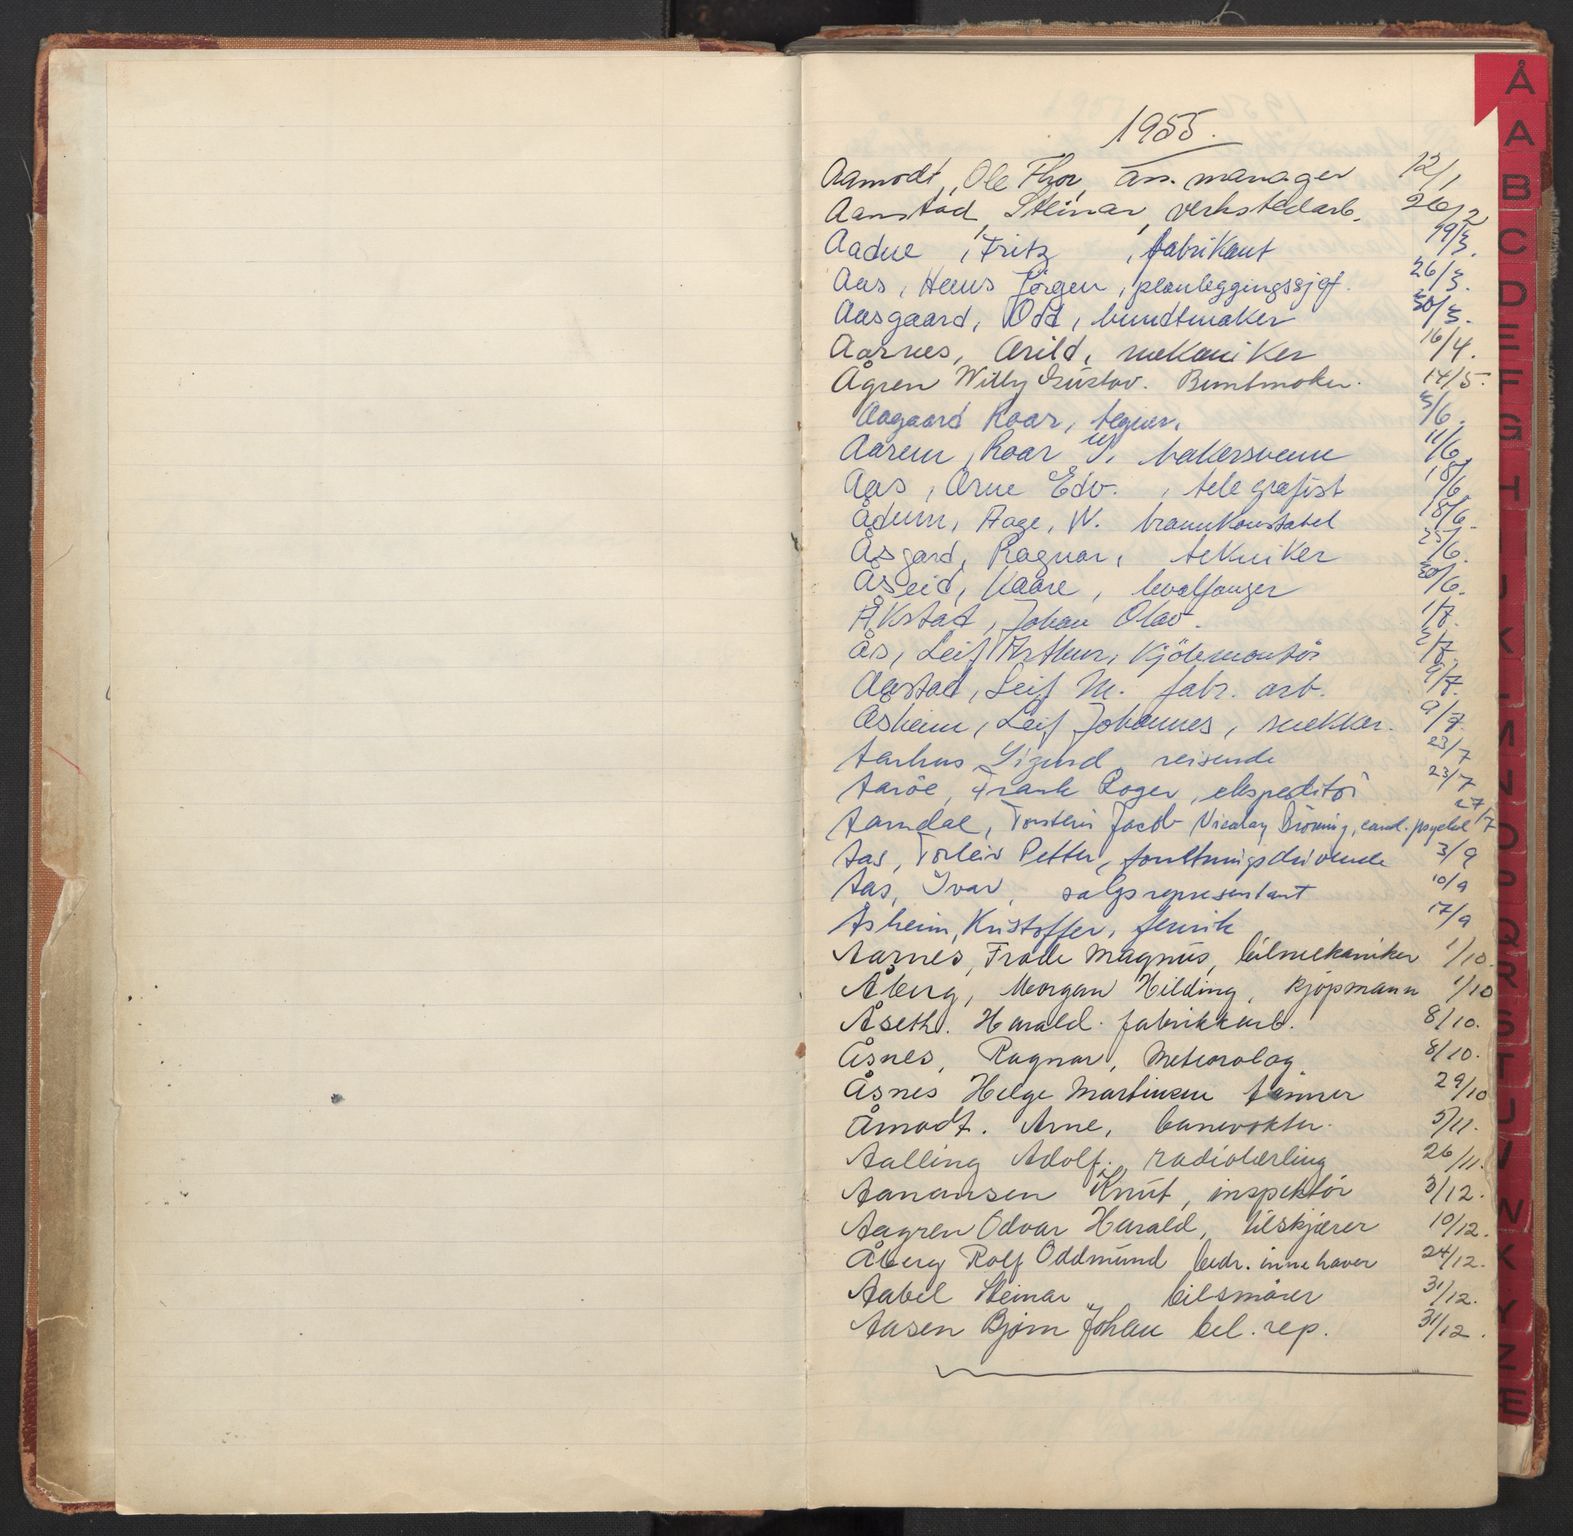 1955.
Aamodt, Ole Thor, ass. manager 12/1
Aanstad, Steinar, verkstedarb. 26/2
Aadne, Fritz, fabrikant 19/3.
Aas, Hans Jörgen, planleggingssjef. 26/3.
Aasgaard, Odd, bundtmaker 30/3.
Aarnes, Arild, mekaniker 16/4.
Ågren Willy Gustav. Buntmaker. 14/5.
Aagaard Roar, tegner, 3/6.
Aarem, Roar, bakersvenn 11/6.
Aas, Arne Edv., telegrafist 18/6.
Ådum, Aage, W. brannkonstabel 18/6.
Åsgard, Ragnar, tekniker 25/6.
Åseid, Kaare, hvalfanger 30/6.
Åkstad, Johan Olav. 1/7.
Ås, Leif Arthur, kjölemontör 2/7.
Aastad, Leif M. fabr. arb. 9/7.
Åsheim, Leif Johannes, snekker. 9/7.
Aarhus Sigurd, reisende 23/7
Aaröe, Frank Roger, ekspeditör 23/7
Aamdal, Torstein Jacob Nicolay Bröning, cand. psychol 27/7
Aas, Torleiv Petter, forretningsdrivende 3/9
Aas, Ivar, salgsrepresentant 10/9
Åsheim, Kristoffer, fenrik 17/9
Aarnes, Frode Magnus, bilmekaniker 1/10.
Åberg, Morgan Hilding, kjøpmann 1/10
Åseth. Harald. fabrikkarb. 8/10.
Åsnes, Ragnar, Meteorolog. 8/10.
Åsnes Helge Martinsen tømmer 29/10
Åmodt. Arne, banevokter. 5/11.
Aalling Adolf, radiolærling 26/11.
Aanonsen Knut, inspektör 3/12.
Aagren Odvar Harald, tilskjærer 10/12.
Åberg Rolf Oddmund bedr. innehaver 24/12.
Aabel Steinar, bilsmörer 31/12.
Aasen Bjørn Johan bil. rep. 31/12.
Å
A
B
C
D
E
F
G
H
I
J
K
L
M
N
O
P
Q
R
S
T
U
V
W
X
Y
Z
Æ